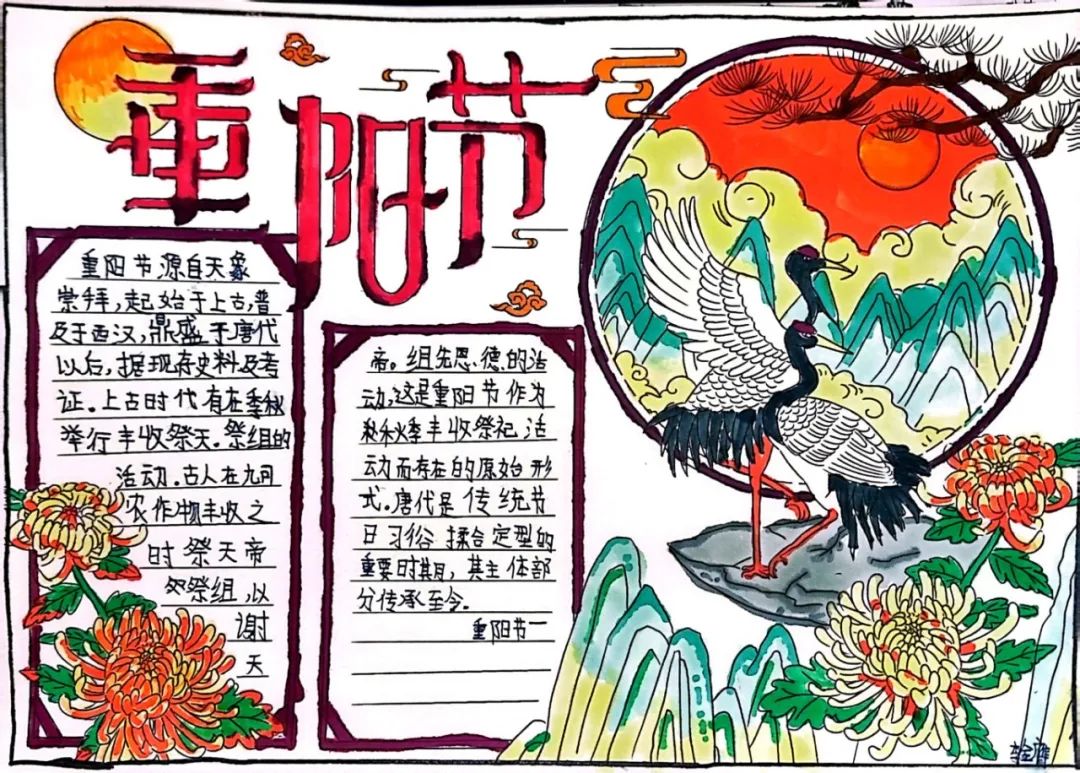 重阳节
重阳节,源自天象
崇拜,起始于上古,普
及于西汉,鼎盛于唐代
以后,据现存史料及考
证.上古时代有在季秋
举行丰收祭天.祭组的
活动.古人在九月
农作物丰收之
时祭天帝
祭组,以
谢
天
帝。组先恩德的活
动.这是重阳节作为
秋季丰收祭祀活
动而存在的原始形
式.唐代是传统节
日习俗揉合定型的
重要时期,其主体部
分传承至今。
重阳节一